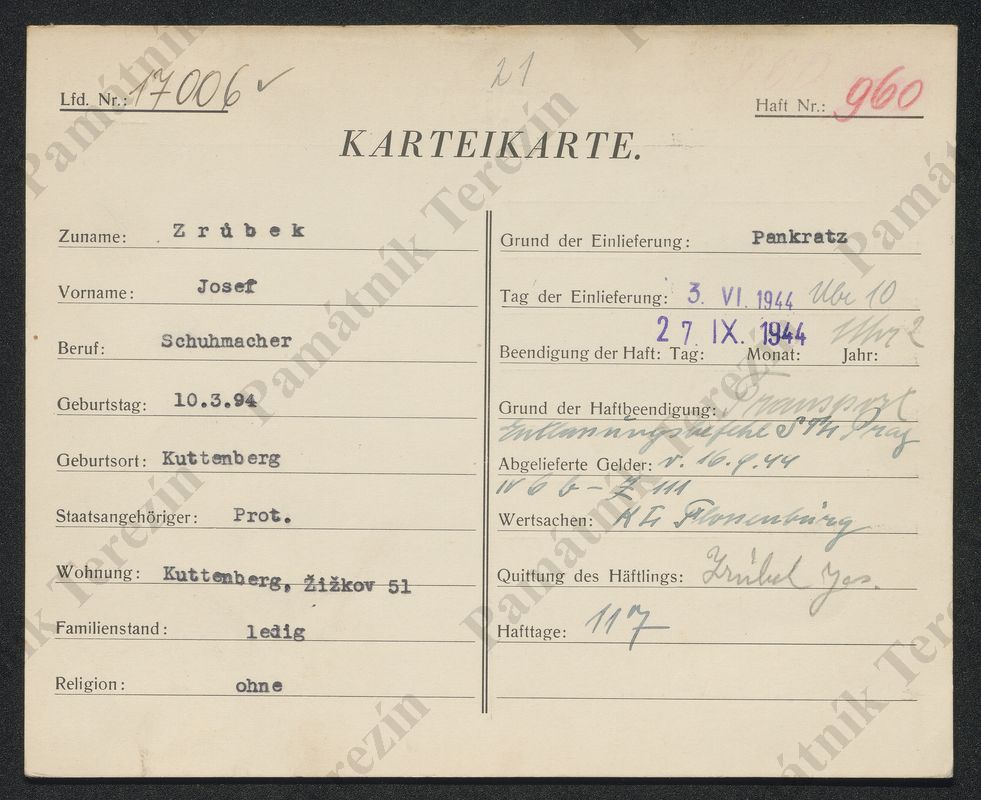 Lfd. Nr.: 17006 ✓
21
Haft Nr.: 960
KARTEIKARTE.
Zuname: Zrůbek
Vorname: Josef
Beruf: Schuhmacher
Geburtstag: 10.3.94
Geburtsort: Kuttenberg
Staatsangehöriger: Prot.
Wohnung: Kuttenberg, Žižkov 51
Familienstand: ledig
Religion: ohne
Grund der Einlieferung: Pankratz
Tag der Einlieferung: 3. VI. 1944 Uhr 10
27 IX. 1944 Uhr 2
Beendigung der Haft: Tag: Monat: Jahr:
Grund der Haftbeendigung: Transport
Prag
Abgelieferte Gelder: v. 16.9.44
IV 6 b - Z 111
Wertsachen: KL Flossenbürg
Quittung des Häftlings: Zrůbek Jos.
Hafttage: 117
Památník Terezín